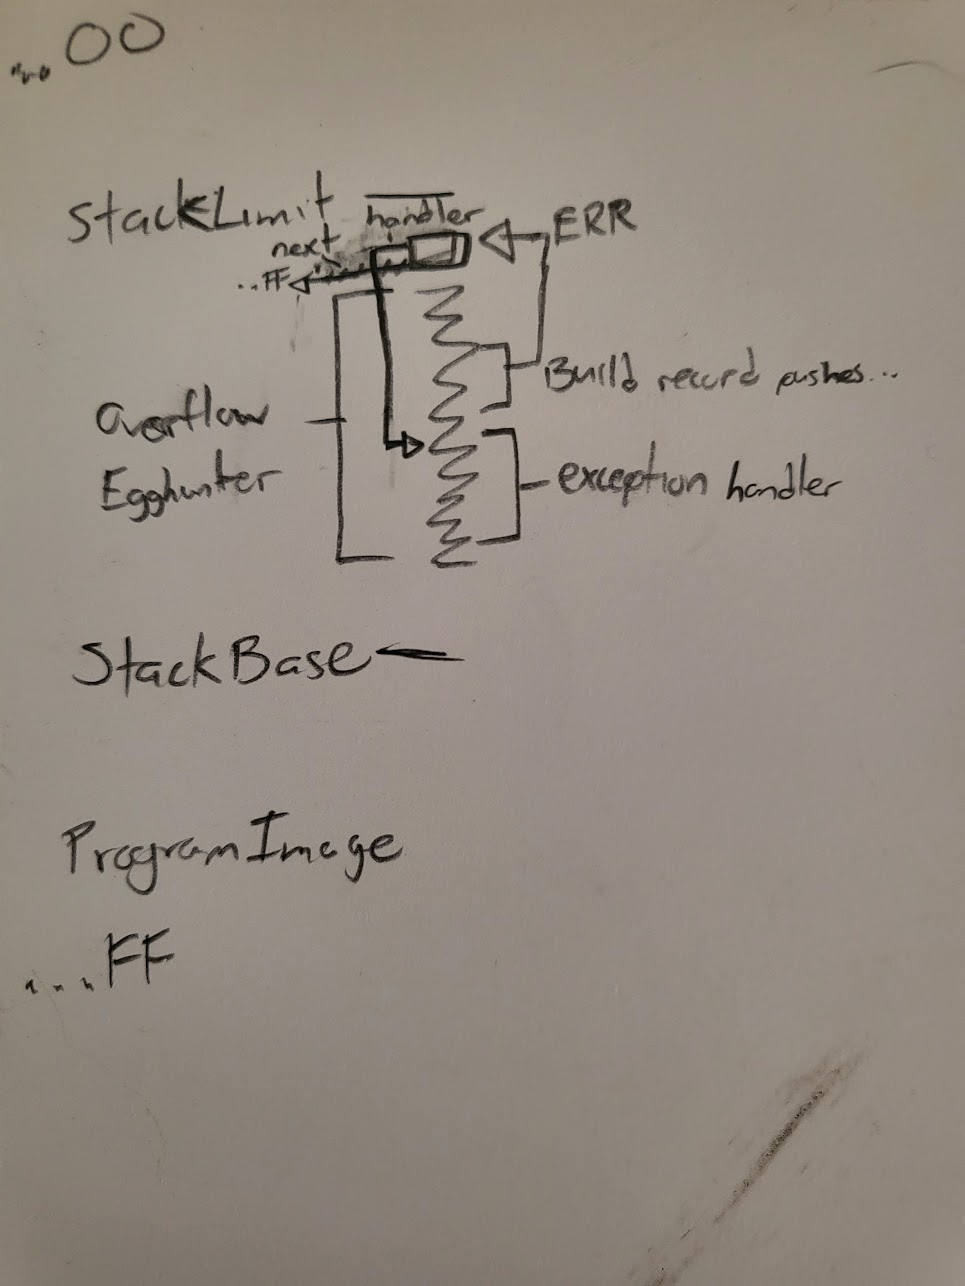 ...00
StackLimit
handler
ERR
next
..FF
Build record pushes...
Overflow
Egghunter
exception handler
StackBase
ProgramImage
....FF